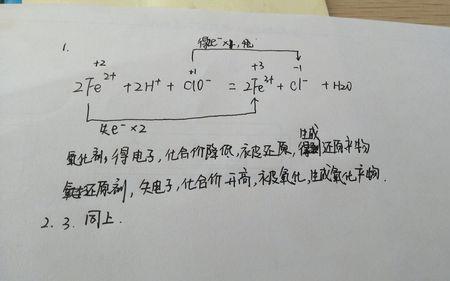 1.
得e⁻×2
+2 +1 +3 -1
2Fe²⁺ + 2H⁺ + ClO⁻ = 2Fe³⁺ + Cl⁻ + H₂O
失e⁻×2
氧化剂,得电子,化合价降低,被还原,生成还原产物
还原剂,失电子,化合价升高,被氧化,生成氧化产物.
2. 3. 同上.